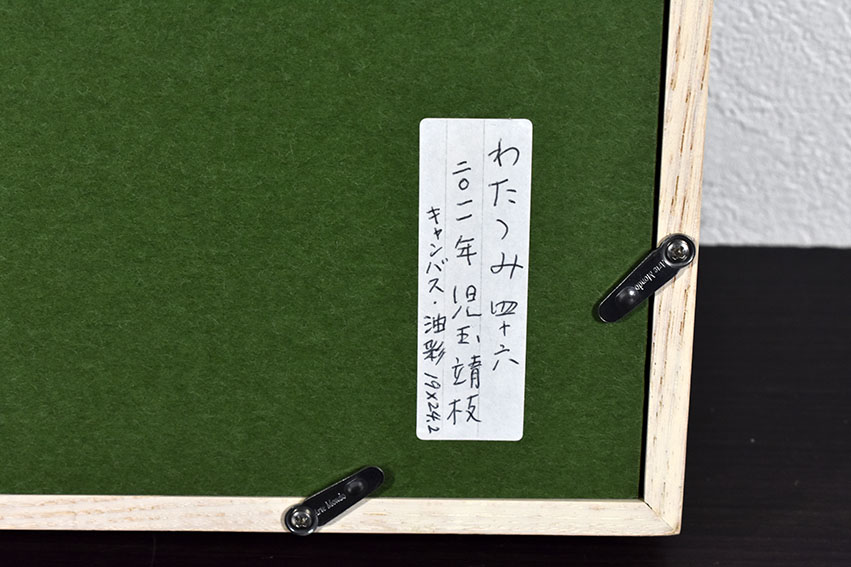 わたつみ 四十六
二〇一一年 児玉靖枝
キャンバス・油彩 19×24.2
Arte Mondo
Arte Mondo